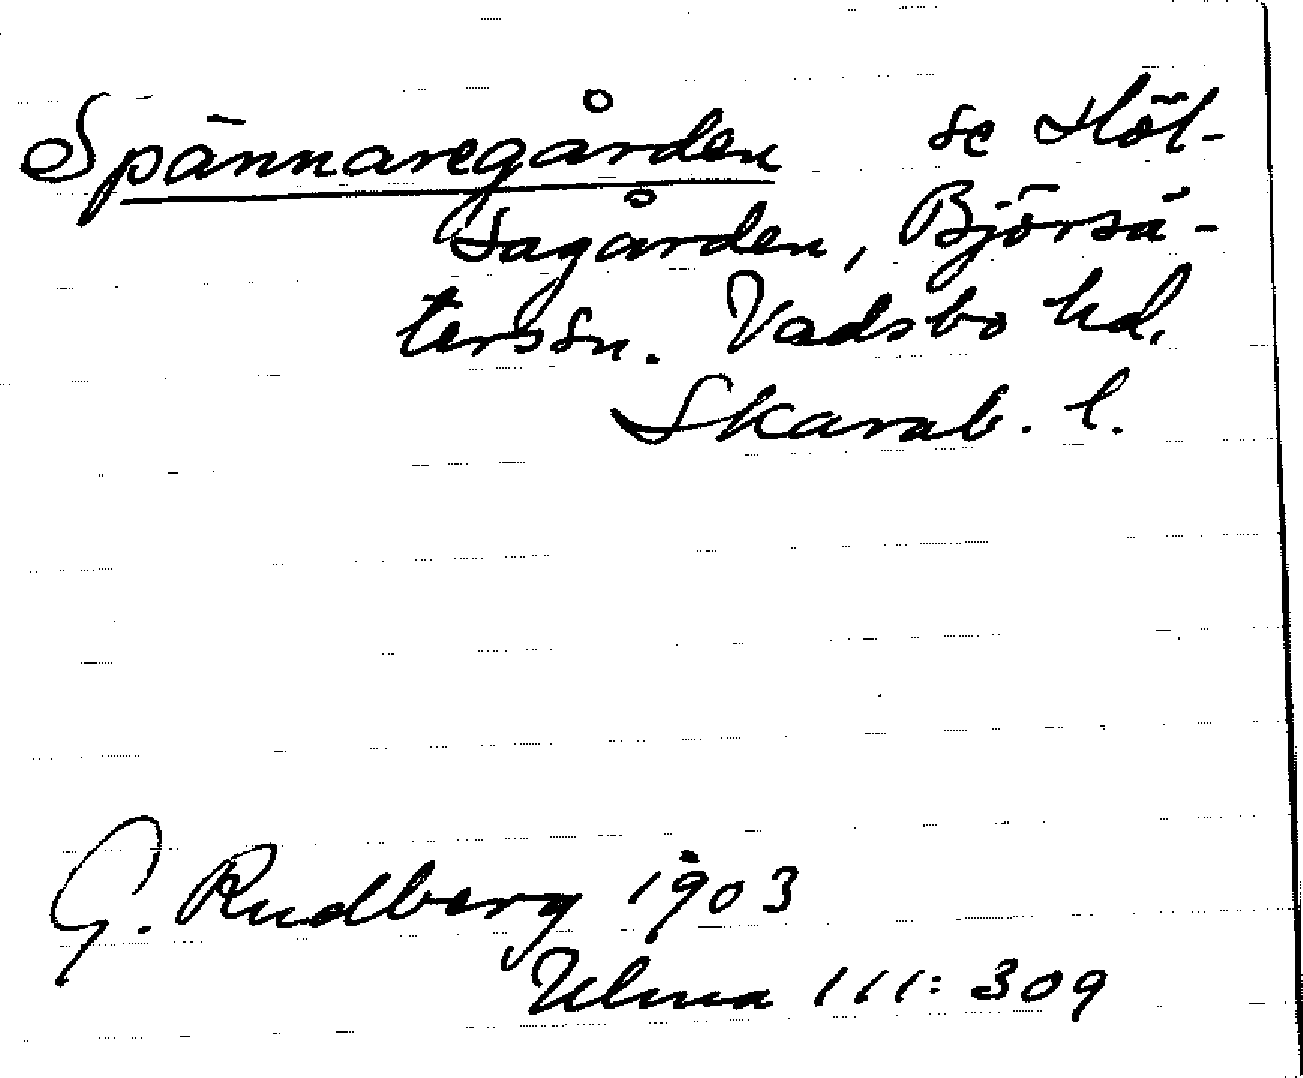 Spännaregården se Höl-
sagården, Björsä-
terssn. Vadsbo hd.
Skarab. l.
G. Rudberg 1903
Ulma 111:309